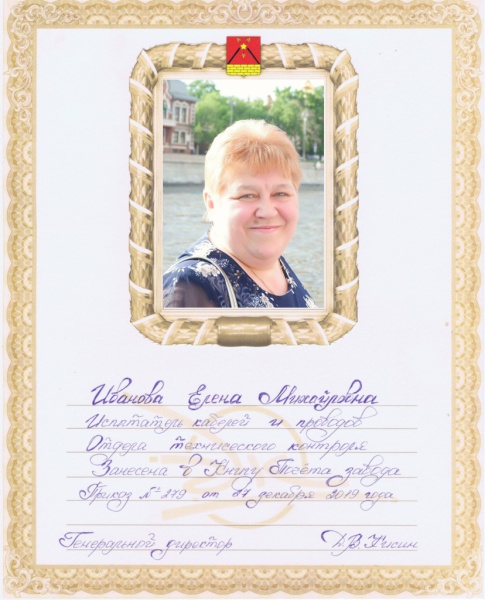 Иванова Елена Михайловна
Испытатель кабелей и проводов
Отдела технического контроля
Занесена в Книгу Почёта завода
Приказ № 279 от 27 декабря 2019 года
Генеральный директор Д.В.